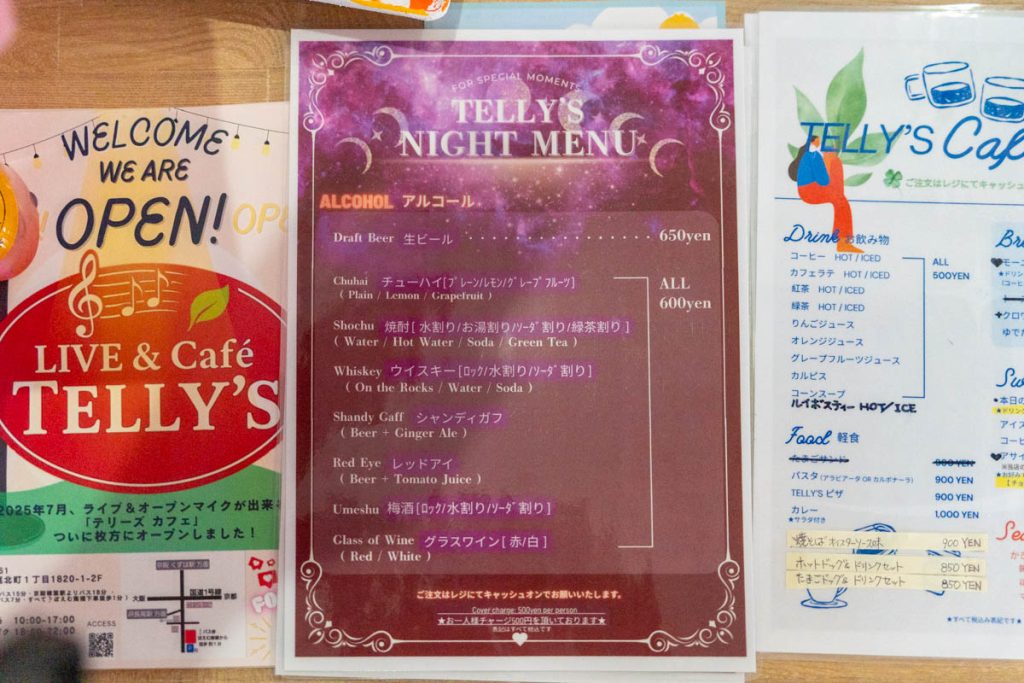 WELCOME
WE ARE
OPEN!
LIVE & Café
TELLY'S
2025年7月、ライブ&オープンマイクが出来
「テリーズ カフェ」
ついに枚方にオープンしました!
北町1丁目1820-1-2F
10:00-17:00
ACCESS
国道1号線
大阪
京都
FOR SPECIAL MOMENTS
TELLY'S
NIGHT MENU
ALCOHOL アルコール
Draft Beer 生ビール 650yen
Chuhai チューハイ[プレーン/レモン/グレープフルーツ]
( Plain / Lemon / Grapefruit )
ALL
600yen
Shochu 焼酎[ 水割り/お湯割り/ソーダ割り/緑茶割り ]
( Water / Hot Water / Soda / Green Tea )
Whiskey ウイスキー[ロック/水割り/ソーダ割り]
( On the Rocks / Water / Soda )
Shandy Gaff シャンディガフ
( Beer + Ginger Ale )
Red Eye レッドアイ
( Beer + Tomato Juice )
Umeshu 梅酒[ロック/水割り/ソーダ割り]
Glass of Wine グラスワイン[ 赤/白 ]
( Red / White )
ご注文はレジにてキャッシュオンでお願いいたします。
Cover charge: 500yen per person
★お一人様チャージ500円を頂いております★
表記はすべて税込です
TELLY'S Caf
ご注文はレジにてキャッシュオ
Drink お飲み物
コーヒー HOT / ICED
カフェラテ HOT / ICED
紅茶 HOT / ICED
緑茶 HOT / ICED
りんごジュース
オレンジジュース
グレープフルーツジュース
カルピス
コーンスープ
ルイボスティー HOT/ICE
ALL
500YEN
Food 軽食
たまごサンド
パスタ (アラビアータ OR カルボナーラ) 900 YEN
TELLY'S ピザ 900 YEN
カレー 1,000 YEN
★サラダ付き
焼そば オイスターソース味 900 YEN
ホットドッグ& ドリンクセット 850 YEN
たまごドッグ& ドリンクセット 850 YEN
★すべて税込み表記です★
Br
モーニ
★ドリン
(コーヒ
クロワ
ゆでた
Sw
★本日の
★ドリン
アイス
コーヒ
アサイ
Sea